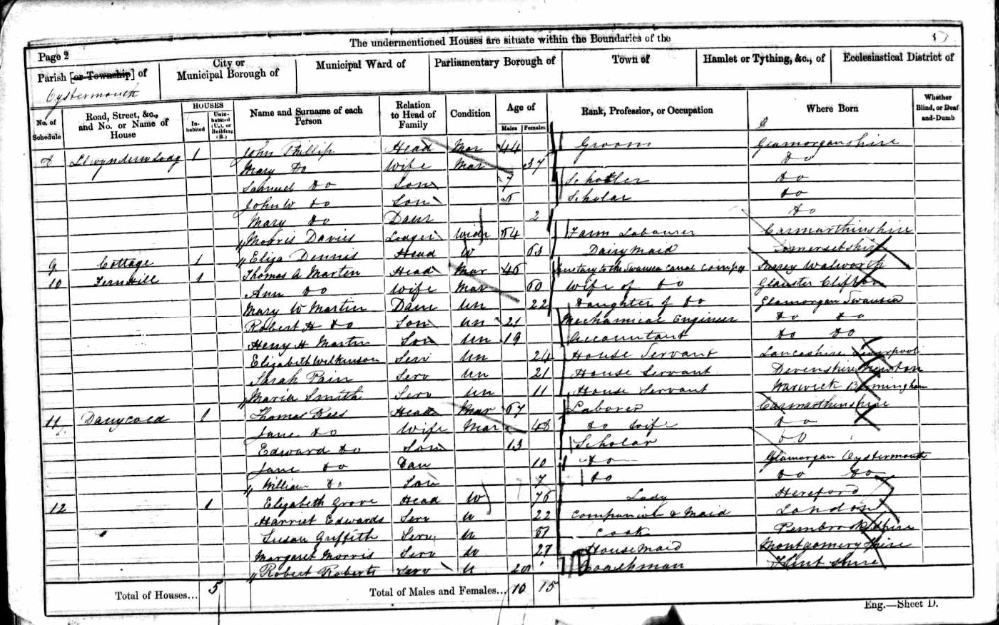 The undermentioned Houses are situate within the Boundaries of the
Page 2
Parish [or Township] of
City or Municipal Borough of
Municipal Ward of
Parliamentary Borough of
Town of
Hamlet or Tything, &c., of
Ecclesiastical District of
Oystermouth
No. of Schedule
Road, Street, &c., and No. or Name of House
HOUSES
In-habited
Unin-habited (U.), or Building (B.)
Name and Surname of each Person
Relation to Head of Family
Condition
Age of
Males
Females
Rank, Profession, or Occupation
Where Born
Whether Blind, or Deaf-and-Dumb
8 Llwynderw Lodg 1 John Phillip Head Mar 44 Groom Glamorganshire
Mary Do Wife Mar 37 Do
Samuel Do Son 7 Scholler Do
John W Do Son 5 Scholar Do
Mary Do Daur 2 Do
Morris Davies Lodger Widr 64 Farm Labourer Carmarthinshire
9 Cottage 1 Eliza Dennis Head W 63 Dairy Maid Somersetshire
10 Fernhill 1 Thomas A Martin Head Mar 45 Secretary to the Swansea Canal Compy Surrey Walworth
Ann Do Wife Mar 60 Wife of Do Gloucster Clifton
Mary W Martin Daur Un 22 Daughter of Do Glamorgan Swansea
Robert H Do Son Un 21 Mechanical Engineer Do Do
Henry H Martin Son Un 19 Accountant Do Do
Elizabeth Wilkinson Serv Un 24 House Servant Lancashire Liverpool
Sarah Pain Serv Un 21 House Servant Devenshire
Maria Smith Serv Un 11 House Servant Warwick Birmingham
11 1 Thomas Rees Head Mar 67 Laborer Carmarthinshire
Jane Do Wife Mar 48 Do Wife Do
Edward Do Son 13 Scholar Do
Jane Do Dau 10 Do Glamorgan Oystermouth
William Do Son 7 Do Do Do
12 1 Elizabeth Grove Head W 76 Lady Hereford
Harriet Edwards Serv U 22 Companion & Maid London
Susan Griffith Serv U 51 Cook Pembrokeshire
Margaret Morris Serv U 27 House Maid Montgomeryshire
Robert Roberts Serv U 20 Coachman Flintshire
Total of Houses... 5 Total of Males and Females... 10 15
Eng.—Sheet D.